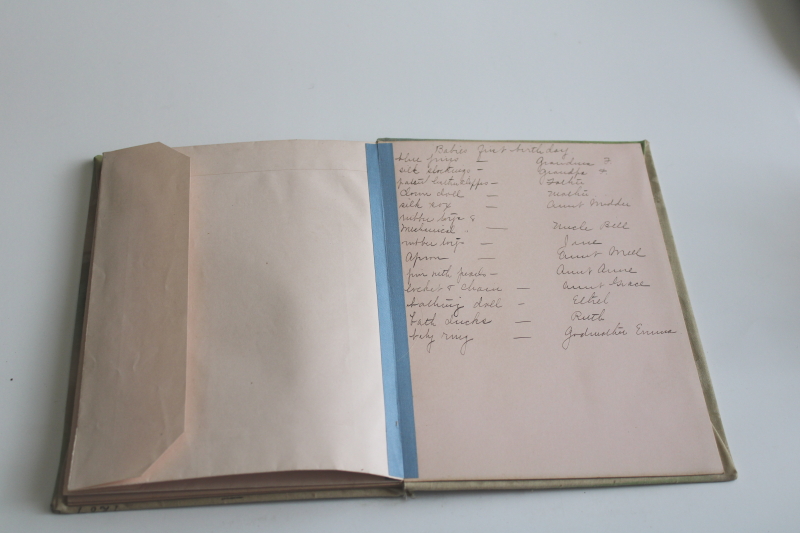 Babies first birthday
blue pins — Grandma F
silk stockings — Grandpa F
Father
Clown doll — Mother
silk sox — Aunt Middie
rubber toys &
Mechanical " — Uncle Bill
rubber toys — Jane
Apron — Aunt Mell
pin with pearls — Aunt Anne
locket & chain — Aunt Grace
bathing doll — Ethel
bath ducks — Ruth
baby ring — Godmother Emma